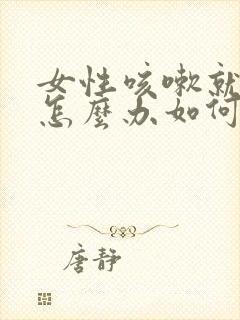 女性咳嗽就
怎麼办如何
唐静